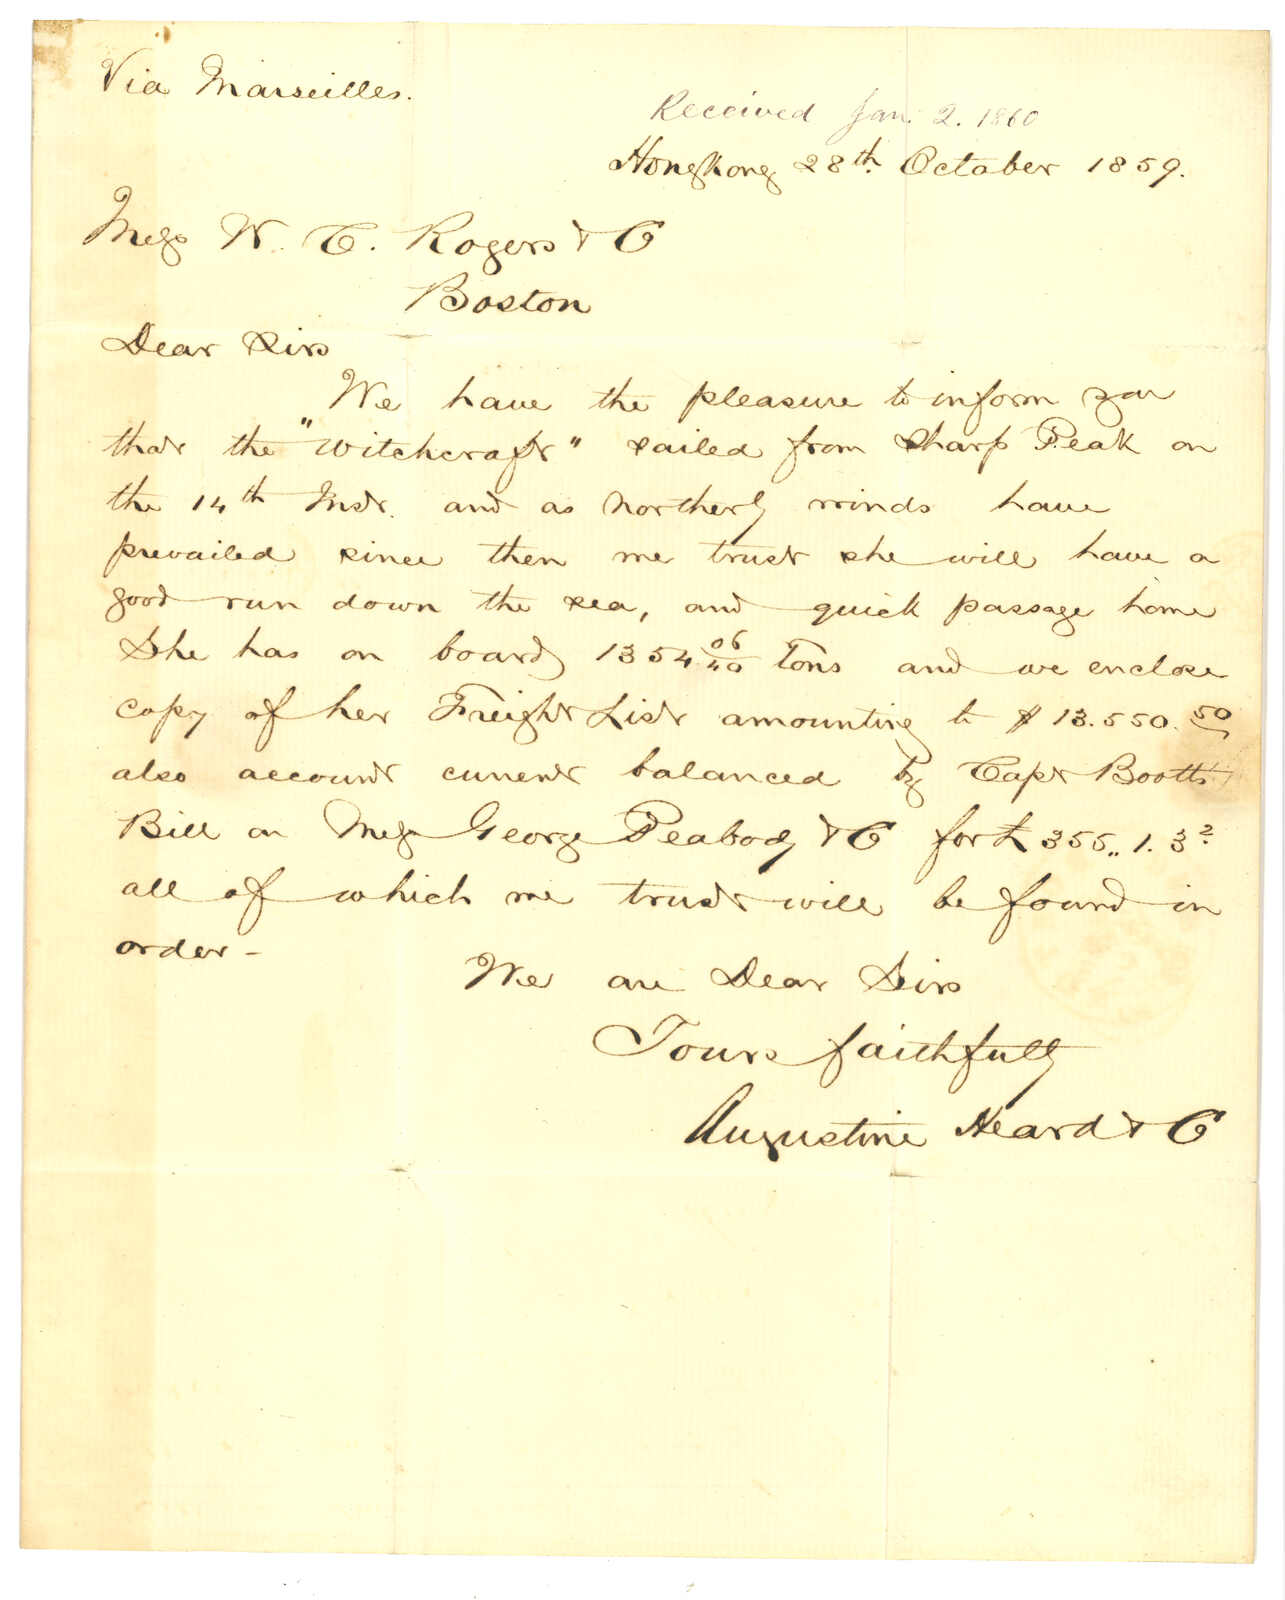 Via Marseilles.
Received Jan. 2. 1860
Hongkong 28th. October 1859.
Mess W. C. Rogers & Co
Boston
Dear Sirs
We have the pleasure to inform you
that the "Witchcraft" sailed from Sharp Peak on
the 14th Inst. and as Northerly winds have
prevailed since then we trust she will have a
good run down the sea, and quick passage home
She has on board 1354 06/40 Tons and we enclose
copy of her Freight List amounting to $ 13.550.50
also account current balanced by Capt Booth's
Bill on Mess George Peabody & Co for £ 355,, 1. 3
all of which we trust will be found in
order -
We are Dear Sirs
Yours faithfully
Augustine Heard & Co